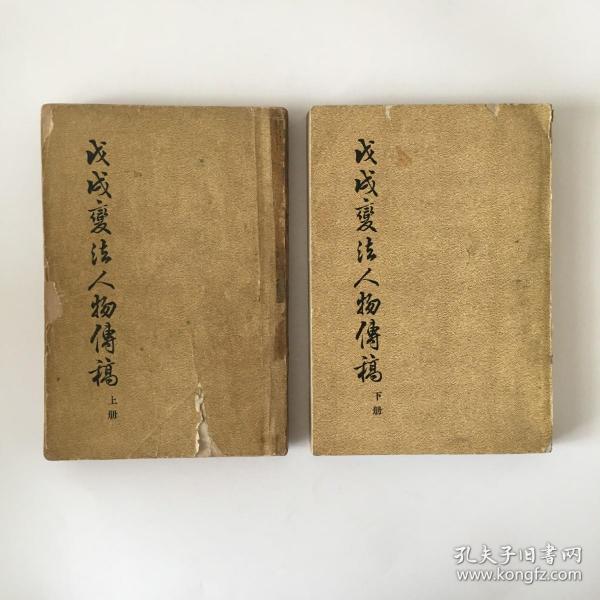 戊戌變法人物傳稿
上册
戊戌變法人物傳稿
下册
孔夫子旧书网
www.kongfz.com